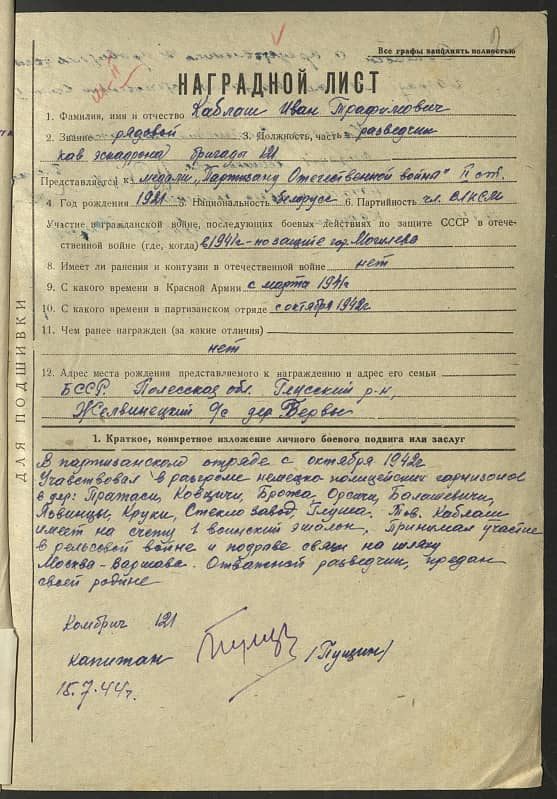 Все графы заполнять полностью
НАГРАДНОЙ ЛИСТ
1. Фамилия, имя и отчество Каблаш Иван Трафимович
2. Звание рядовой 3. Должность, часть разведчик
кав. эскадрона бригады 121
Представляется к медали „Партизану Отечественной война" II ст.
4. Год рождения 1921 5. Национальность беларус 6. Партийность чл. ВЛКСМ
Участие в гражданской войне, последующих боевых действиях по защите СССР в отече-
ственной войне (где, когда) в 1941г - по защите гор. Могилева
8. Имеет ли ранения и контузии в отечественной войне нет
9. С какого времени в Красной Армии с марта 1941г
10. С какого времени в партизанском отряде с октября 1942г
11. Чем ранее награжден (за какие отличия)
нет
12. Адрес места рождения представляемого к награждению и адрес его семьи
БССР. Полесская обл. Глусский р-н,
Желвинецкий с/с дер Бервы
1. Краткое, конкретное изложение личного боевого подвига или заслуг
В партизанском отряде с октября 1942г
Участвовал в разгроме немецко полицейских гарнизонов
в дер: Пратаси, Ковчичи, Брожа, Орсичи, Болашевичи,
Лавинцы, Круки, Стекло завод Глуша. Тов. Каблаш
имеет на счету 1 воинский эшалон. Принимал участие
в рельсовой войне и подрове связи на шляху
Москва-Варшава. Отважной разведчик, предан
своей родине
Комбриг 121
капитан (Пущин)
15.7.44г.
ДЛЯ ПОДШИВКИ